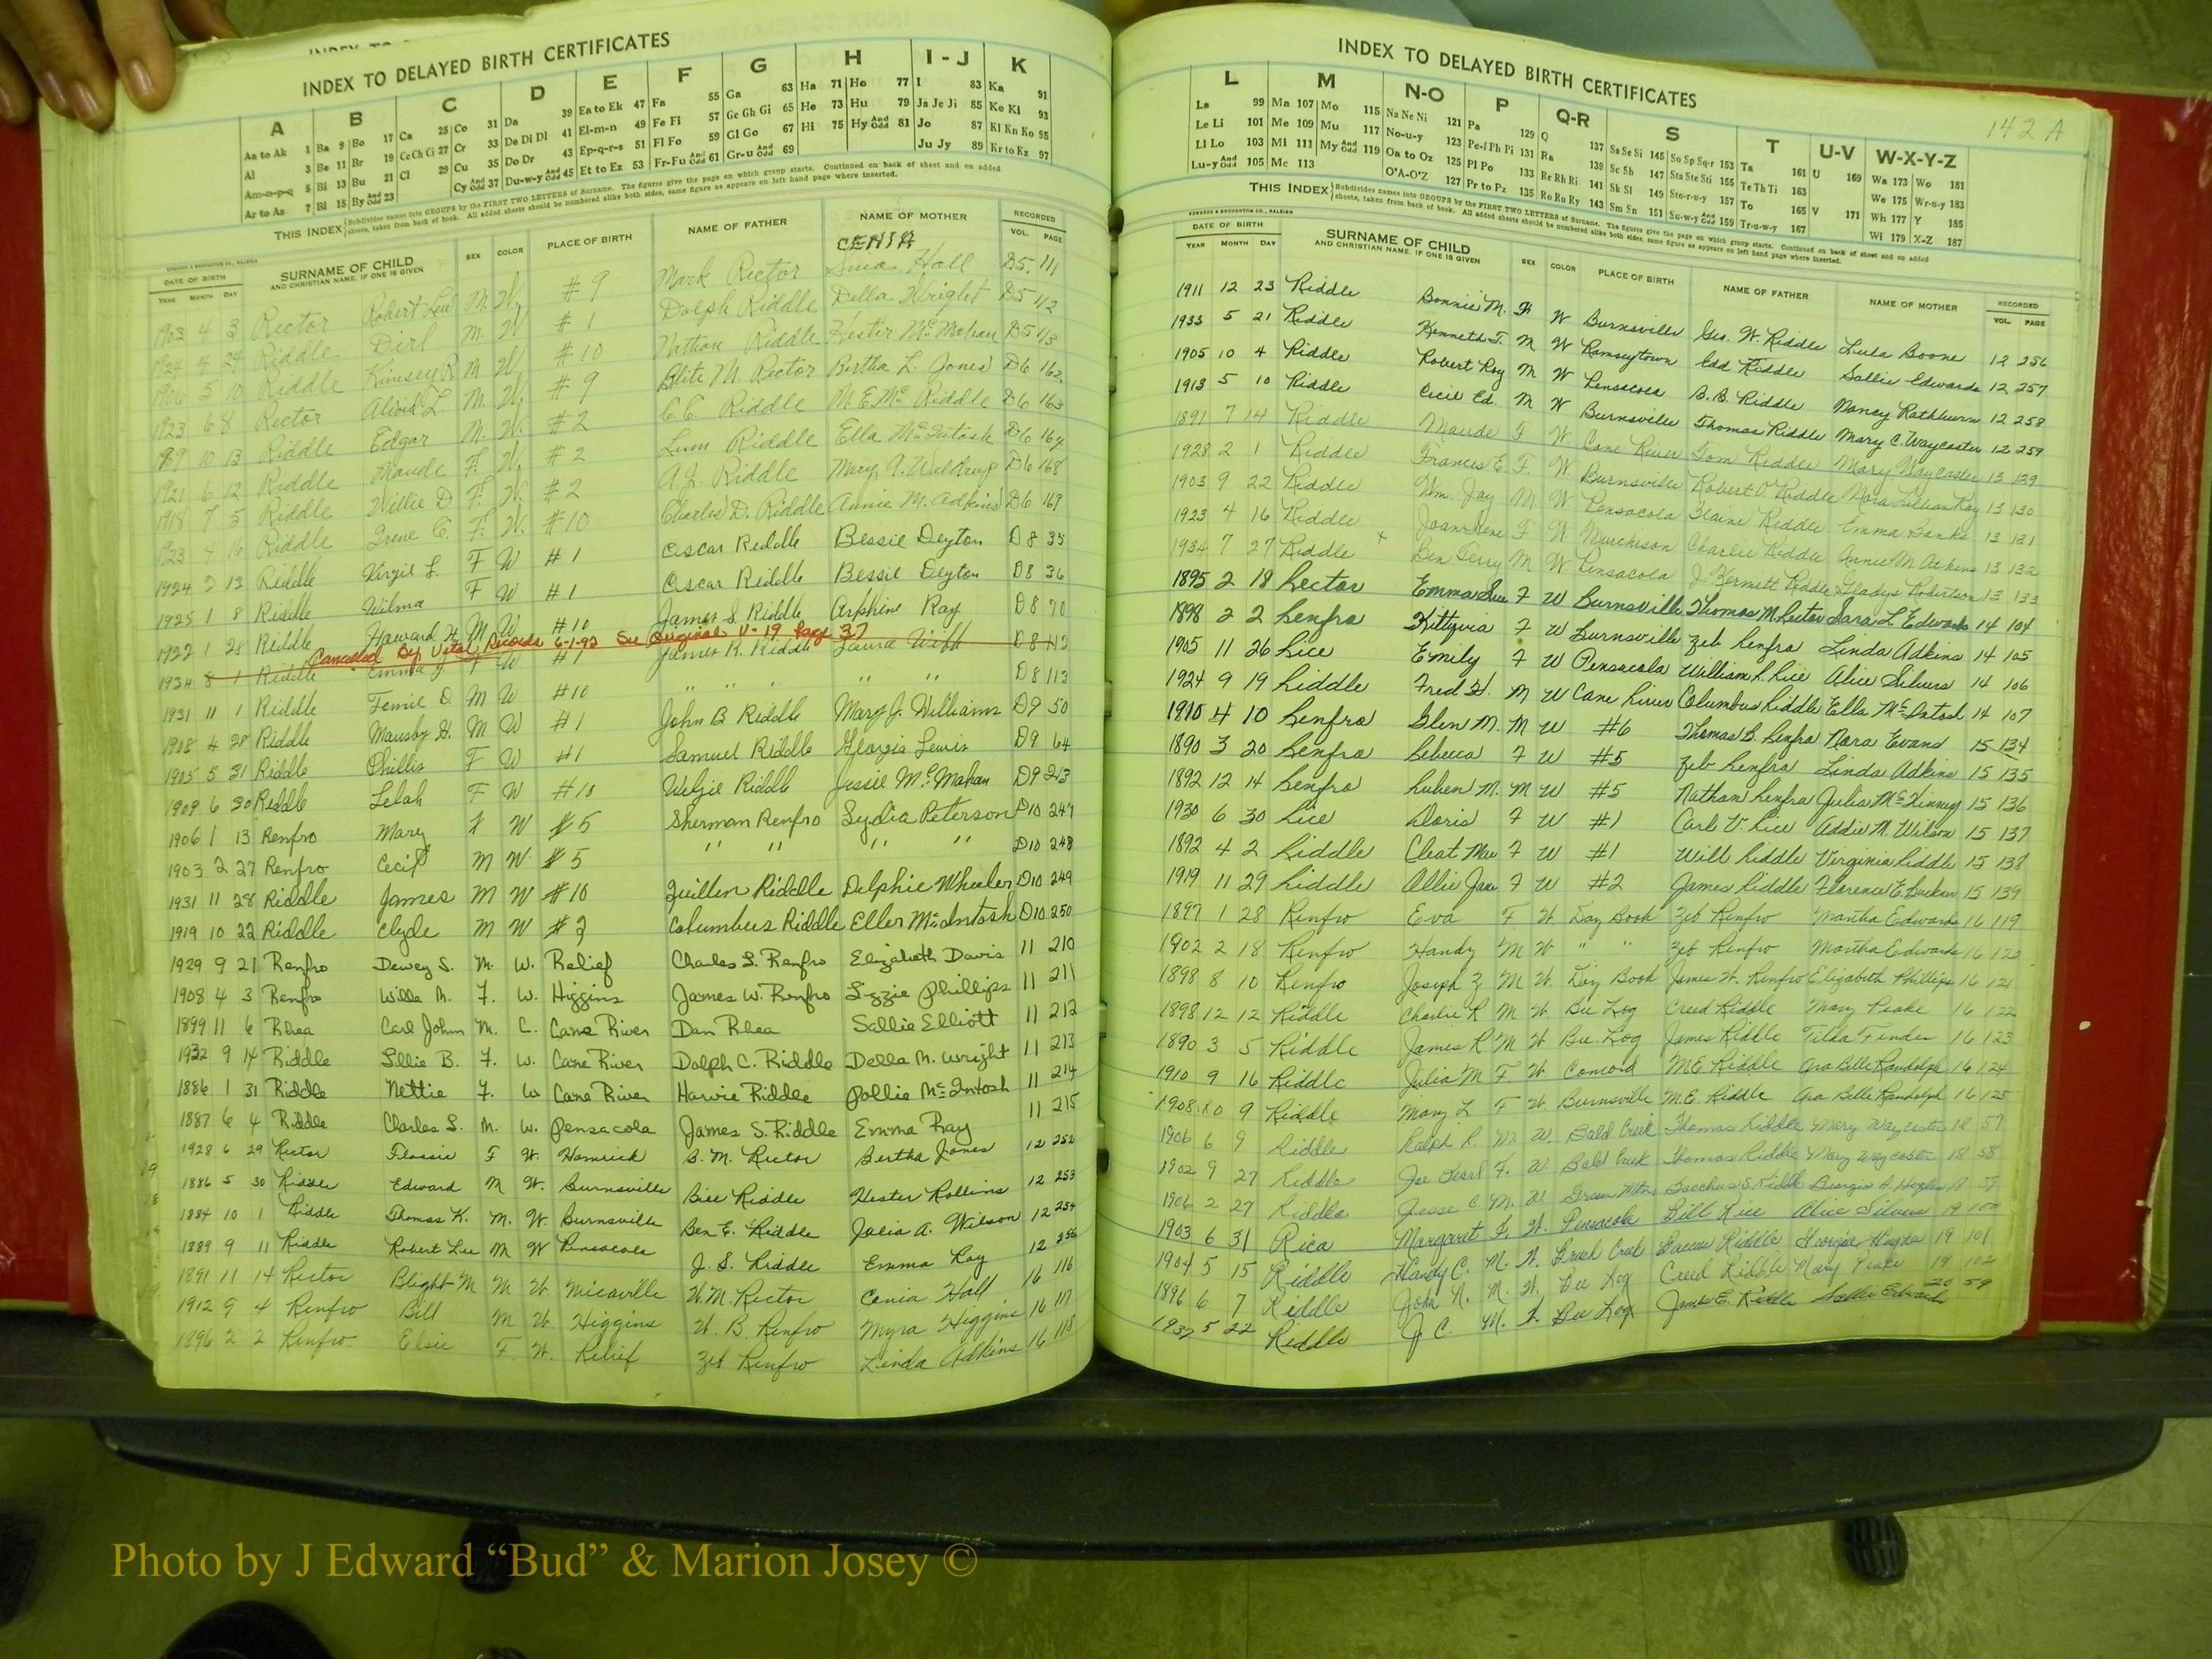 INDEX TO DELAYED BIRTH CERTIFICATES
A B C D E F G H I - J K
Aa to Ak 1 Ba 9 Bo 17 Ca 25 Co 31 Da 39 Ea to Ek 47 Fa 55 Ga 63 Ha 71 Ho 77 I 83 Ka 91
Al 3 Be 11 Br 19 Ce Ch Ci 27 Cr 33 De Di Dl 41 El-m-n 49 Fe Fi 57 Ge Gh Gi 65 He 73 Hu 79 Ja Je Ji 85 Ke Ki 93
Am-n-p-q 5 Bi 13 Bu 21 Cl 29 Cu 35 Do Dr 43 Ep-q-r-s 51 Fl Fo 59 Gl Go 67 Hi 75 Hy And Odd 81 Jo 87 Kl Kn Ko 95
Ar to Az 7 Bl 15 By And Odd 23 Cy And Odd 37 Du-w-y And Odd 45 Et to Ez 53 Fr-Fu And Odd 61 Gr-u And Odd 69 Ju Jy 89 Kr to Kz 97
THIS INDEX Subdivides names into GROUPS by the FIRST TWO LETTERS of Surname. The figures give the page on which group starts. Continued on back of sheet and on added
sheets, taken from back of book. All added sheets should be numbered alike both sides, same figure as appears on left hand page where inserted.
DATE OF BIRTH SURNAME OF CHILD SEX COLOR PLACE OF BIRTH NAME OF FATHER NAME OF MOTHER RECORDED
YEAR MONTH DAY AND CHRISTIAN NAME, IF ONE IS GIVEN VOL. PAGE
CENIA
1903 4 3 Rector Robert Lee M. W. #9 Mark Rector Hall D5 111
1924 4 24 Riddle Dirl M. W #1 Dolph Riddle Della Wright D5 112
1906 5 10 Riddle Kimsey R M W #10 Nathan Riddle Hester McMahan D5 113
1923 6 8 Rector L. M. W. #9 Blite M. Rector Bertha L. Jones D6 162
10 13 Riddle Edgar M. W. #2 C.C. Riddle Riddle D6 163
1921 6 12 Riddle Maude F. W. #2 Lum Riddle Ella McIntosh D6 164
1918 7 5 Riddle Willie D F. W. #2 A.J. Riddle Mary A. D6 168
1923 4 16 Riddle Irene C. F. W. #10 Charles D. Riddle Annie M. Adkins D6 169
1924 2 13 Riddle Virgil L. F W #1 Oscar Riddle Bessie Deyton D8 35
1925 1 8 Riddle Wilma F W #1 Oscar Riddle Bessie Deyton D8 36
1922 1 28 Riddle Howard H. M W #10 James S. Riddle Ray D8 70
Canceled By Vital Records 6-1-92 See Original V-19 Page 37
1934 8 1 Riddle Emma J. F W #1 James R. Riddle Laura Webb D8 112
1931 11 1 Riddle D. M W #10 " " " " " D8 113
1908 4 28 Riddle H. M W #1 John B Riddle Mary J. Williams D9 50
1905 5 31 Riddle Phillis F W #1 Samuel Riddle Georgia Lewis D9 64
1909 6 30 Riddle Lelah F W #10 Welzie Riddle Jessie McMahan D9 213
1906 1 13 Renfro Mary F W #5 Sherman Renfro Lydia Peterson D10 247
1903 2 27 Renfro Cecil M W #5 " " " " D10 248
1931 11 28 Riddle James M W #10 Quillen Riddle Delphie Wheeler D10 249
1919 10 22 Riddle Clyde M W #2 Columbus Riddle Eller McIntosh D10 250
1929 9 21 Renfro Dewey S. M. W. Relief Charles S. Renfro Elizabeth Davis 11 210
1908 4 3 Renfro Willa M. F. W. Higgins James W. Renfro Lizzie Phillips 11 211
1899 11 6 Rhea Carl John M. C. Cane River Dan Rhea Sallie Elliott 11 212
1932 9 14 Riddle Lllie B. F. W. Cane River Dolph C. Riddle Della M. Wright 11 213
1886 1 31 Riddle Nettie F. W Cane River Harvie Riddle Pollie McIntosh 11 214
1887 6 4 Riddle Charles S. M. W. Pensacola James S. Riddle Emma Ray 11 215
1928 6 29 Rector Flossie F W. Hamrick B. M. Rector Bertha Jones 12 252
1886 5 30 Riddle Edward M W. Burnsville Bill Riddle Hester Rollins 12 253
1884 10 1 Riddle Thomas K. M. W. Burnsville Ben E. Riddle Julia A. Wilson 12 254
1889 9 11 Riddle Robert Lee M W Pensacola J. S. Riddle Emma Ray 12 255
1891 11 14 Rector Blight M M W. Micaville W. M. Rector Cenia Hall 16 116
1912 9 4 Renfro Bill M W. Higgins W. B. Renfro Myra Higgins 16 117
1896 2 2 Renfro Elsie F. W. Relief Zeb Renfro Linda Adkins 16 118
142 A
INDEX TO DELAYED BIRTH CERTIFICATES
L M N-O P Q-R S T U-V W-X-Y-Z
La 99 Ma 107 Mo 115 Na Ne Ni 121 Pa 129 Q 137 Sa Se Si 145 So Sp Sq-r 153 Ta 161 U 169 Wa 173 Wo 181
Le Li 101 Me 109 Mu 117 No-u-y 123 Pe-f Ph Pi 131 Ra 139 Sc Sh 147 Sta Ste Sti 155 Te Th Ti 163 We 175 Wr-u-y 183
Ll Lo 103 Mi 111 My And Odd 119 Oa to Oz 125 Pl Po 133 Re Rh Ri 141 Sk Sl 149 Sto-r-u-y 157 To 165 V 171 Wh 177 Y 185
Lu-y And Odd 105 Mc 113 O'A-O'Z 127 Pr to Pz 135 Ro Ru Ry 143 Sm Sn 151 Su-w-y And Odd 159 Tr-u-w-y 167 Wi 179 X-Z 187
THIS INDEX Subdivides names into GROUPS by the FIRST TWO LETTERS of Surname. The figures give the page on which group starts. Continued on back of sheet and on added
sheets, taken from back of book. All added sheets should be numbered alike both sides, same figure as appears on left hand page where inserted.
EDWARDS & BROUGHTON CO., RALEIGH
DATE OF BIRTH SURNAME OF CHILD SEX COLOR PLACE OF BIRTH NAME OF FATHER NAME OF MOTHER RECORDED
YEAR MONTH DAY AND CHRISTIAN NAME, IF ONE IS GIVEN VOL. PAGE
1911 12 23 Riddle Bonnie M. F W Burnsville Geo. W. Riddle Lula Boone 12 256
1933 5 21 Riddle Kenneth T. M W Ramseytown Edd Riddle Sallie Edwards 12 257
1905 10 4 Riddle Robert Roy M W Pensacola B. B. Riddle Nancy Rathburn 12 258
1913 5 10 Riddle Cecil Ed. M W Burnsville Thomas Riddle Mary C. Waycaster 12 259
1891 7 14 Riddle Maude F W. Cane River Tom Riddle Mary Waycaster 13 129
1928 2 1 Riddle Frances E. F. W. Burnsville Robert O. Riddle Nora Lillian Ray 13 130
1903 9 22 Riddle Wm. Jay M W. Pensacola Riddle Emma Banks 13 131
1923 4 16 Riddle F W. Murchison Charlie Riddle Annie M. Atkins 13 132
1934 7 27 Riddle Ben Terry M W. Pensacola J. Kermitt Riddle Gladys Robertson 13 133
1895 2 18 Rector Emma Sue F W Burnsville Thomas M. Rector Sara L. Edwards 14 104
1898 2 2 Renfro Kittyvia F W Burnsville Zeb Renfro Linda Adkins 14 105
1905 11 26 Rice Emily F W Pensacola William R. Rice Alice Silvers 14 106
1924 9 19 Riddle Fred H. M W Cane River Columbus Riddle Ella McIntosh 14 107
1910 4 10 Renfro Glen M. M W #6 Thomas B. Renfro Nora Evans 15 134
1890 3 20 Renfro Rebecca F W #5 Zeb Renfro Linda Adkins 15 135
1892 12 14 Renfro Ruben M. M W #5 Nathan Renfro Julia McKinney 15 136
1930 6 30 Rice Doris F W #1 Carl V. Rice Addie M. Wilson 15 137
1892 4 2 Riddle Cleat Mae F W #1 Will Riddle Virginia Riddle 15 138
1919 11 29 Riddle Allie Jane F W #2 James Riddle Florence E. 15 139
1897 1 28 Renfro Eva F W Day Book Zeb Renfro Martha Edwards 16 119
1902 2 18 Renfro Handy M W " " Zeb Renfro Martha Edwards 16 120
1898 8 10 Renfro Joseph Z M W. Day Book James W. Renfro Elizabeth Phillips 16 121
1898 12 12 Riddle Charlie R M W. Bee Log Creed Riddle Mary Peake 16 122
1890 3 5 Riddle James R M W Bee Log James Riddle Tilda Tender 16 123
1910 9 16 Riddle Julia M F W. Concord M E Riddle Ara Belle Randolph 16 124
1908 10 9 Riddle Mary L F W. Burnsville M. E. Riddle Ara Belle Randolph 16 125
1906 6 9 Riddle Ralph R. M. W. Bald Creek Thomas Riddle Mary Waycaster 18 57
1902 9 27 Riddle Pearl F. W. Bald Creek Thomas Riddle Mary Waycaster 18 58
1906 2 27 Riddle Jesse C M. W Green Mtn. Bacchus S. Riddle Georgia A. 18 59
1903 6 31 Rice Margaret F. W. Pensacola Bill Rice Alice Silvers 19 100
1904 5 15 Riddle Handy C. M. W. Brush Creek Riddle Georgia 19 101
1896 6 7 Riddle John N. M. W. Bee Log Creed Riddle Mary Peake 19 102
1937 5 22 Riddle J. C. M. W. Bee Log James E. Riddle Sallie Edwards 20 59
Photo by J Edward “Bud” & Marion Josey ©